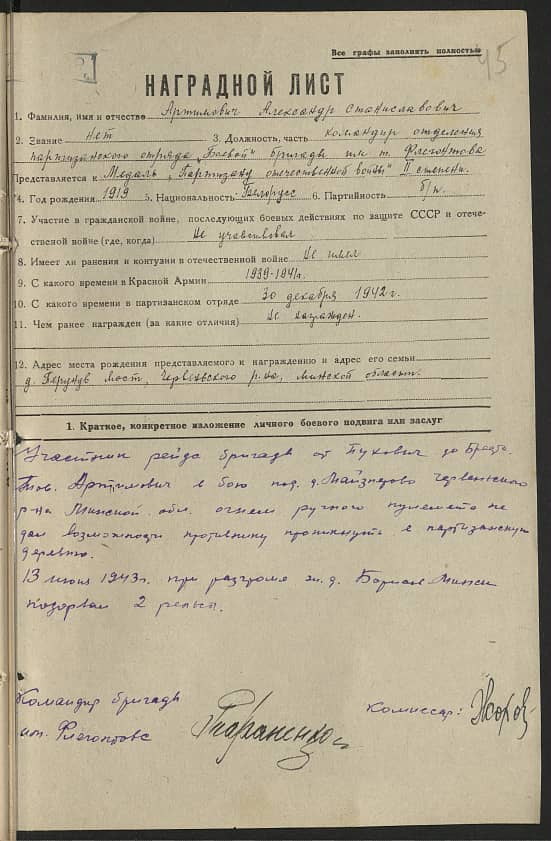 Все графы заполнять полностью
45
НАГРАДНОЙ ЛИСТ
1. Фамилия, имя и отчество Артимович Александр Станиславович
2. Звание нет 3. Должность, часть командир отделения
партизанского отряда „Боевой" бригады им т. Флегонтова
Представляется к Медаль „Партизану отечественной войны" II степени.
4. Год рождения 1919 5. Национальность Белорус 6. Партийность б/п.
7. Участие в гражданской войне, последующих боевых действиях по защите СССР и отече-
ственной войне (где, когда) Не участвовал
8. Имеет ли ранения и контузии в отечественной войне Не имел
9. С какого времени в Красной Армии 1939-1941г.
10. С какого времени в партизанском отряде 30 декабря 1942г.
11. Чем ранее награжден (за какие отличия) Не награжден.
12. Адрес места рождения представляемого к награждению и адрес его семьи
д. Мост, Червеньского р-на, Минской области.
1. Краткое, конкретное изложение личного боевого подвига или заслуг
Участник рейда бригады от Пухович до Бреста.
Тов. Артимович в бою под д. Червеньского
р-на Минской обл. огнем ручного пулемета не
дал возможности противнику проникнуть в партизанскую
деревню.
13 июня 1943г. при разгроме ж.д. Минск
подорвал 2 рельсы.
Командир бригады
им. Флегонтова Тараненко
Комиссар: Жоров